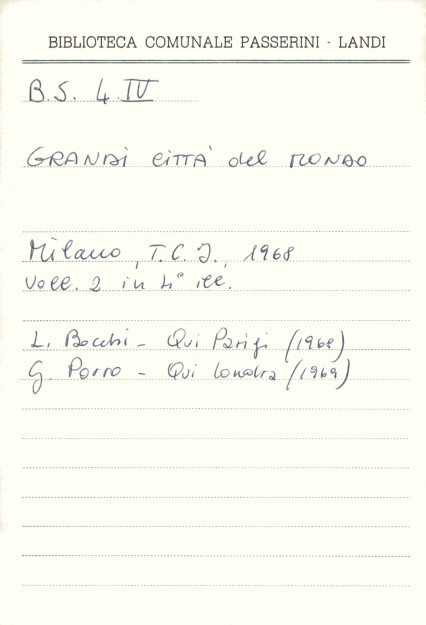 BIBLIOTECA COMUNALE PASSERINI - LANDI
B.S. 4 IV
GRANDI CITTÀ del MONDO
Milano, T.C.I., 1968
Voll. 2 in 4° ill.
L. Bocchi - Qui Parigi (1968)
G. Porro - Qui Londra (1969)